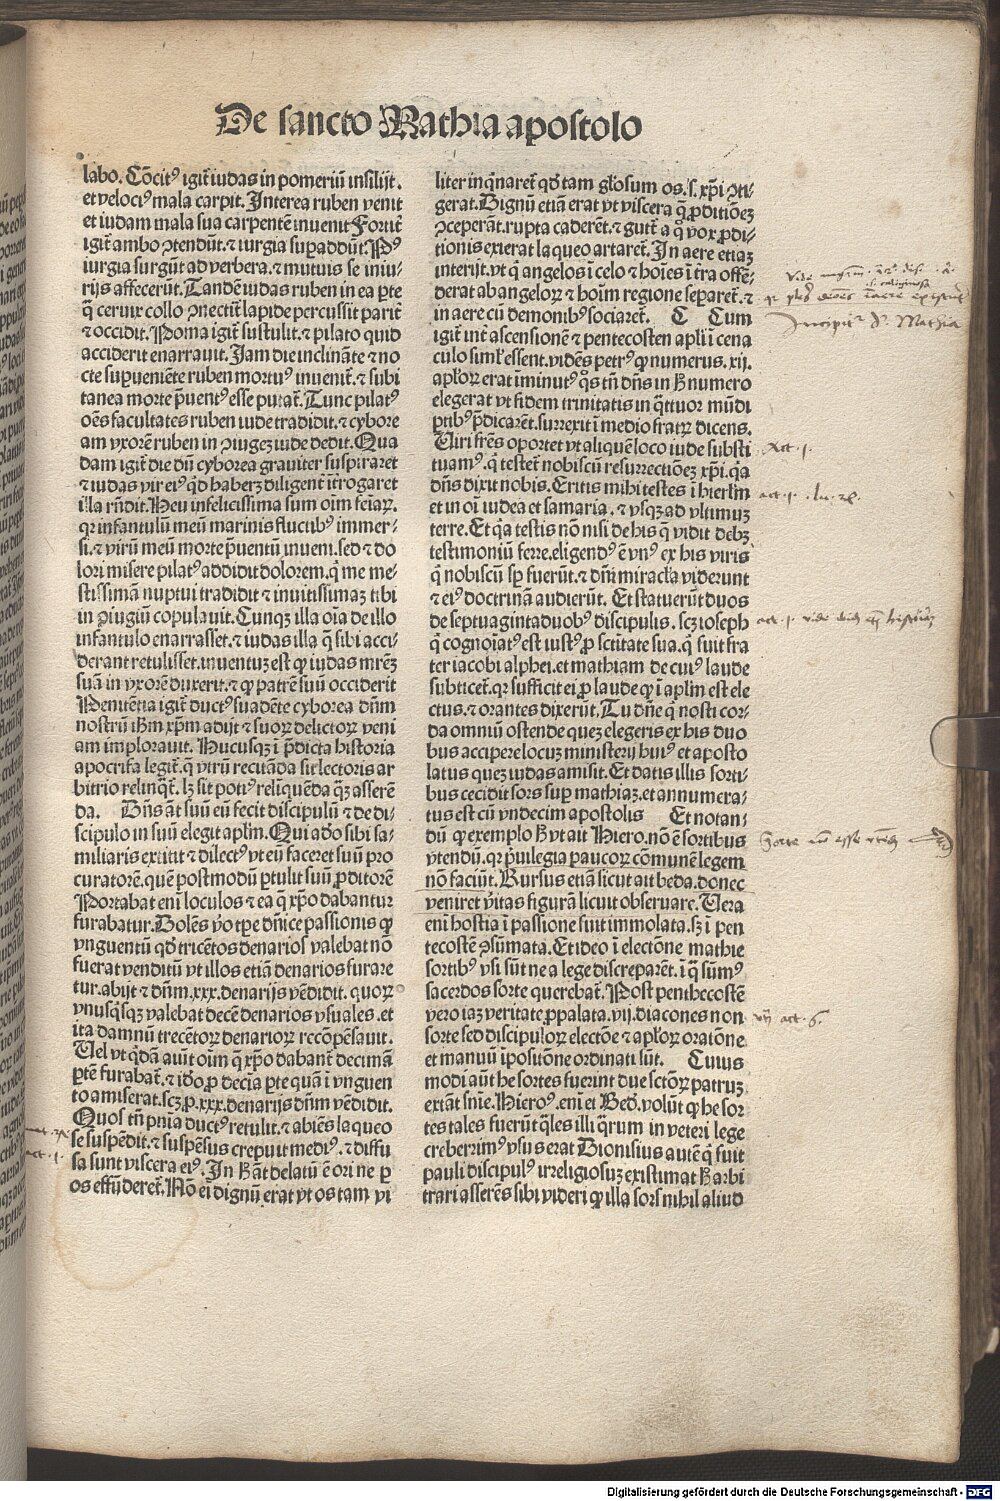 De sancto Mathia apostolo
labo. Cōcitꝰ igit̄ iudas in pomeriū insilijt.
et velociꝰ mala carpit. Interea ruben venit
et iudam mala sua carpentē inuenit Fortit̄
igit̄ ambo ꝯtendūt. ⁊ iurgia suꝑaddūt. Pꝰ
iurgia surgūt ad verbera. ⁊ mutuis se iniu⸗
rijs affecerūt. Tandē iudas ruben in ea ꝑte
q̄ ceruix collo ꝯnectit̄ lapide percussit parit̄
⁊ occidit. Poma igit̄ sustulit. ⁊ pilato quid
acciderit enarrauit. Jam die inclināte ⁊ no
cte suꝑueniēte ruben mortuꝰ inuenit̄. ⁊ subi
tanea morte p̄uentꝰ esse putat̄. Tunc pilatꝰ
oēs facultates ruben iude tradidit. ⁊ cybore
am vxorē ruben in ꝯiugeꝫ iude dedit. Qua
dam igit̄ die dū cyborea grauiter suspiraret
⁊ iudas vir eiꝰ qd̄ haberꝫ diligent̄ īt̄rogaret
illa rn̄dit. Heu infelicissima sum oīm feīaꝝ.
qꝛ infantulū meū marinis fluctibꝰ immer⸗
si. ⁊ virū meū morte p̄uentū inueni. sed ⁊ do
lori misere pilatꝰ addidit dolorem. q̄ me me⸗
stissimā nuptui tradidit ⁊ inuitissimaꝫ tibi
in ꝯiugiū copulauit. Cunqꝫ illa oīa de illo
infantulo enarrasset. ⁊ iudas illa q̄ sibi acci⸗
derant retulisset. inuentuꝫ est ꝙ iudas mrēꝫ
suā in vxorē duxerit. ⁊ ꝙ patrē suū occiderit
Penitētia igit̄ ductꝰ suadēte cyborea dn̄m
nostrū ihm̄ xp̄m adijt ⁊ suoꝝ delictoꝝ veni
am implorauit. Hucusqꝫ ī p̄dicta historia
apocrifa legit̄. q̄ vtrū recitāda sit lectoris ar
bitrio relinq̄t̄. lꝫ sit potiꝰ reliquēda q̄ꝫ asserē
da. Dn̄s āt suū eū fecit discipulū ⁊ de di⸗
scipulo in suū elegit apl̄m. Qui adeo sibi fa⸗
miliaris extitit ⁊ dilectꝰ vt eū faceret suū pro
curatorē. quē postmodū ꝑtulit suū ꝓditorē
Portabat eni loculos ⁊ ea q̄ xp̄o dabantur
furabatur. Dolēs v̊o tꝑe dn̄ice passionis ꝙ
vnguentū qd̄ tricētos denarios valebat nō
fuerat venditū vt illos etiā denarios furare
tur. abijt ⁊ dn̄m. xxx. denarijs vēdidit. quoꝝ
vnusq̄sqꝫ valebat decē denarios vsuales. et
ita damnū trecētoꝝ denarioꝝ recōpēsauit.
Uel vt q̄dā aiūt oīm q̄ xp̄o dabant̄ decimā
ꝑtē furabat̄. ⁊ iđo ꝓ decīa ꝑte quā ī vnguen
to amiserat. scꝫ ꝓ. xxx. denarijs dn̄m vēdidit.
Quos tn̄ pn̄ia ductꝰ retulit. ⁊ abiēs laqueo
se suspēdit. ⁊ suspēsus crepuit mediꝰ. ⁊ diffu
sa sunt viscera eiꝰ. In ħ āt delatū ē ori ne ꝑ
os effūderet̄. Nō ei dignū erat vt os tam vi
liter inq̄naret̄ qd̄ tam gl̄osum os. s. xp̄i ꝯti⸗
gerat. Dignū etiā erat vt viscera q̄ ꝓditiōeꝫ
ꝯceperāt. rupta caderēt. ⁊ gutt̄ a q̊ vox ꝓdi⸗
tionis exierat laqueo artaret̄. In aere etiaꝫ
interijt. vt q̄ angelos ī celo ⁊ hoīes ī t̄ra offē⸗
derat ab angeloꝝ ⁊ hoīm regione separet̄. ⁊
in aere cū demonibꝰ sociaret̄. C Cum
igit̄ int̄ ascensionē ⁊ pentecosten apl̄i ī cena
culo siml̄ essent. vidēs petrꝰ ꝙ numerus. xij.
apl̄oꝝ erat īminutꝰ q̊s tn̄ dn̄s in ħ numero
elegerat vt fidem trinitatis in q̄ttuor mūdi
ꝑtibꝰ p̄dicarēt. surrexit ī medio fratꝝ dicens.
Uiri fr̄es oportet vt aliquē loco iude substi
tuamꝰ. q̄ testet̄ nobiscū resurrectiōeꝫ xp̄i. q̄a
dn̄s dixit nobis. Eritis mihi testes ī hierl̄m
et in oī iudea et samaria. ⁊ vsqꝫ ad vltimuꝫ
terre. Et q̄a testis nō nisi de his q̄ vidit debꝫ
testimoniū ferre. eligendꝰ ē vnꝰ ex his viris
q̄ nobiscū sꝑ fuerūt. ⁊ dn̄i miracl̄a viderunt
⁊ eiꝰ doctrinā audierūt. Et statuerūt duos
de septuagintaduobꝰ discipulis. scꝫ ioseph
q̄ cognoīatꝰ est iustꝰ ꝓ sctītate sua. q̄ fuit fra
ter iacobi alphei. et mathiam de cuiꝰ laude
subticet̄. qꝛ sufficit ei ꝓ laude ꝙ ī apl̄m est ele
ctus. ⁊ orantes dixerūt. Tu dn̄e q̄ nosti cor⸗
da omniū ostende queꝫ elegeris ex his duo
bus accipere locuꝫ ministerij huiꝰ et aposto
latus queꝫ iudas amisit. Et datis illis sorti⸗
bus cecidit sors suꝑ mathiaꝫ. et annumera⸗
tus est cū vndecim apostolis Et notan⸗
dū ꝙ exemplo ħ vt ait Hiero. nō ē sortibus
vtendū. qꝛ p̄uilegia paucoꝝ cōmunē legem
nō faciūt. Rursus etiā sicut ait beda. donec
veniret v̄itas figurā licuit obseruare. Uera
eni hostia ī passione fuit immolata. sꝫ ī pen
tecostē ꝯsūmata. Et ideo ī electōne mathie
sortibꝰ vsi sūt ne a lege discreparēt. ī q̄ sūmꝰ
sacerdos sorte querebat̄. Post penthecostē
vero iaꝫ veritate ꝓpalata. vij. diacones non
sorte sed discipuloꝝ electōe ⁊ apl̄oꝝ oratiōne
et manuū īpositōne ordinati sūt. Cuius
modi aūt he sortes fuerint due sctōꝝ patruꝫ
extāt sn̄ie. Hieroꝰ. eni et Bed. volūt ꝙ he sor
tes tales fuerūt q̄les illi q̄rum in veteri lege
creberrimꝰ vsus erat Dionisius autē q̄ fuit
pauli discipulꝰ irreligiosuꝫ existimat ħ arbi
trari asserēs sibi videri ꝙ illa sors nihil aliud
Incipit S. Mathia
Act. 1.
act. 1. lu. 24.
act. 6.
Digitalisierung gefördert durch die Deutsche Forschungsgemeinschaft - DFG